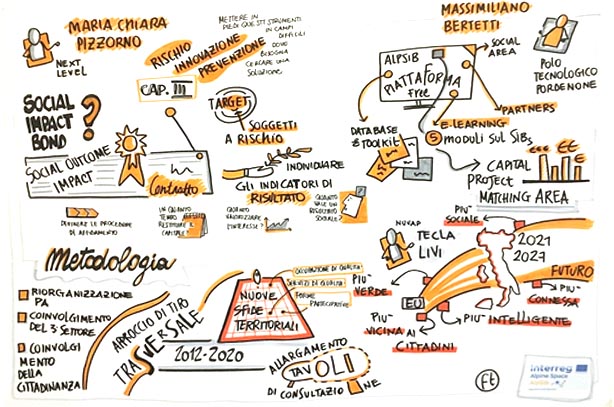 MARIA CHIARA
PIZZORNO
NEXT
LEVEL
METTERE IN
PIEDI QUESTI STRUMENTI
IN CAMPI
DIFFICILI
DOVE
BISOGNA
CERCARE UNA
SOLUZIONE.
RISCHIO
INNOVAZIONE
PREVENZIONE
CAP. III
SOCIAL
IMPACT
BOND ?
TARGET
SOGGETTI
A RISCHIO
SOCIAL OUTCOME
IMPACT
Contratto
INDIVIDUARE
GLI INDICATORI DI
RISULTATO
DEFINIRE LE PROCEDURE
DI AFFIDAMENTO
IN QUANTO
TEMPO
RESTITUIRE IL
CAPITALE?
QUANTO
VALORIZZARE
L'INTERESSE?
QUANTO
VALE UN
RISULTATO
SOCIALE?
MASSIMILIANO
BERTETTI
ALPSIB
PIATTAFORMA
Free
SOCIAL
AREA
POLO
TECNOLOGICO
PORDENONE
PARTNERS
E-LEARNING
5 MODULI SUL SIBs
DATABASE
& TOOLKIT
CAPITAL
PROJECT
MATCHING AREA
€€
Metodologia
RIORGANIZZAZIONE
PA
COINVOLGIMENTO
DEL 3° SETTORE
COINVOLGI
MENTO
DELLA
CITTADINANZA
APPROCCIO DI TIPO
TRASVERSALE
2012-2020
NUOVE
SFIDE
TERRITORIALI
OCCUPAZIONE DI QUALITA'
SERVIZI DI QUALITA'
FORME
PARTECIPATIVE
ALLARGAMENTO
TAVOLI
DI CONSULTAZIONE
NUVAP
TECLA
LIVI
PIU'
SOCIALE
2021
2027
FUTURO
PIU'
VERDE
EU
PIU'
CONNESSA
PIU'
INTELLIGENTE
PIU'
VICINA AI
CITTADINI
ft
Interreg
Alpine Space